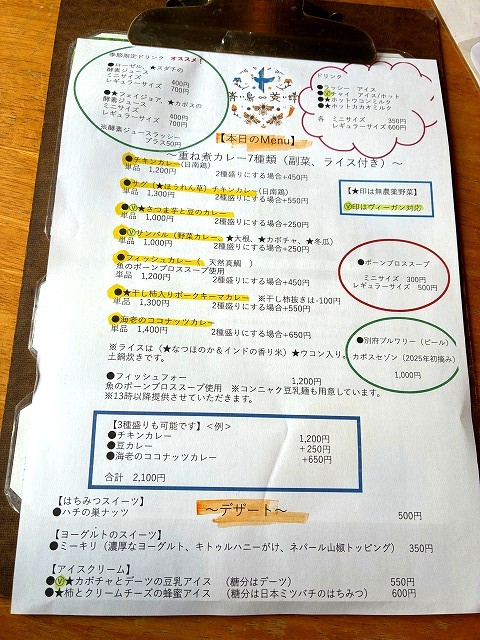 季節限定ドリンク オススメ!
●ローゼル、★スダチの
酵素ジュース
ミニサイズ 400円
レギュラーサイズ 700円
●★フェイジョア、★カボスの
酵素ジュース
ミニサイズ 400円
レギュラーサイズ 700円
※酵素ジュースラッシー
プラス50円
ドリンク
●ラッシー アイス
●Ⓥチャイ アイス/ホット
●★ホットウコンミルク
●★ホットカカオミルク
各 ミニサイズ 350円
レギュラーサイズ 600円
【本日のMenu】
～重ね煮カレー7種類(副菜、ライス付き)～
●チキンカレー(日南鶏)
単品 1,200円 2種盛りにする場合+450円
●サグ(★ほうれん草)チキンカレー(日南鶏)
単品 1,300円 2種盛りにする場合+550円
●Ⓥ★さつま芋と豆のカレー
単品 1,000円 2種盛りにする場合+250円
●Ⓥサンバル(野菜カレー、★大根、★カボチャ、★冬瓜)
単品 1,000円 2種盛りにする場合+250円
●フィッシュカレー( 天然真鯛 )
魚のボーンブロススープ使用
単品 1,200円 2種盛りにする場合+450円
●★干し柿入りポークキーマカレー ※干し柿抜きは-100円
単品 1,300円 2種盛りにする場合+550円
●海老のココナッツカレー
単品 1,400円 2種盛りにする場合+650円
★印は無農薬野菜
Ⓥ印はヴィーガン対応
●ボーンブロススープ
ミニサイズ 300円
レギュラーサイズ 500円
●別府ブルワリー(ビール)
カボスセゾン(2025年初摘み)
1,000円
※ライスは(★なつほのか＆インドの香り米)★ウコン入り。
土鍋炊きです。
●フィッシュフォー 1,200円
魚のボーンブロススープ使用 ※コンニャク豆乳麺も用意しています。
※13時以降提供させていただきます。
【3種盛りも可能です】<例>
●チキンカレー 1,200円
●豆カレー +250円
●海老のココナッツカレー +650円
合計 2,100円
～デザート～
【はちみつスイーツ】
●ハチの巣ナッツ 500円
【ヨーグルトのスイーツ】
●ミーキリ(濃厚なヨーグルト、キトゥルハニーがけ、ネパール山椒トッピング) 350円
【アイスクリーム】
●Ⓥ★カボチャとデーツの豆乳アイス (糖分はデーツ) 550円
●★柿とクリームチーズの蜂蜜アイス (糖分は日本ミツバチのはちみつ) 600円